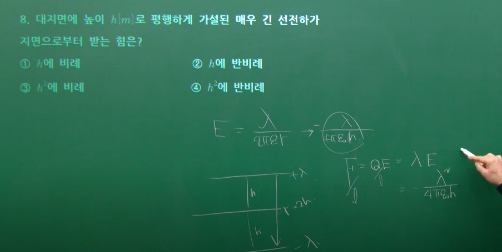 8. 대지면에 높이 h[m]로 평행하게 가설된 매우 긴 선전하가
지면으로부터 받는 힘은?
① h에 비례 ② h에 반비례
③ h²에 비례 ④ h²에 반비례
E = λ/2πε₀r → -λ/4πε₀h
F = QE = λE
= -λ²/4πε₀h
+λ
h
2h
h
-λ